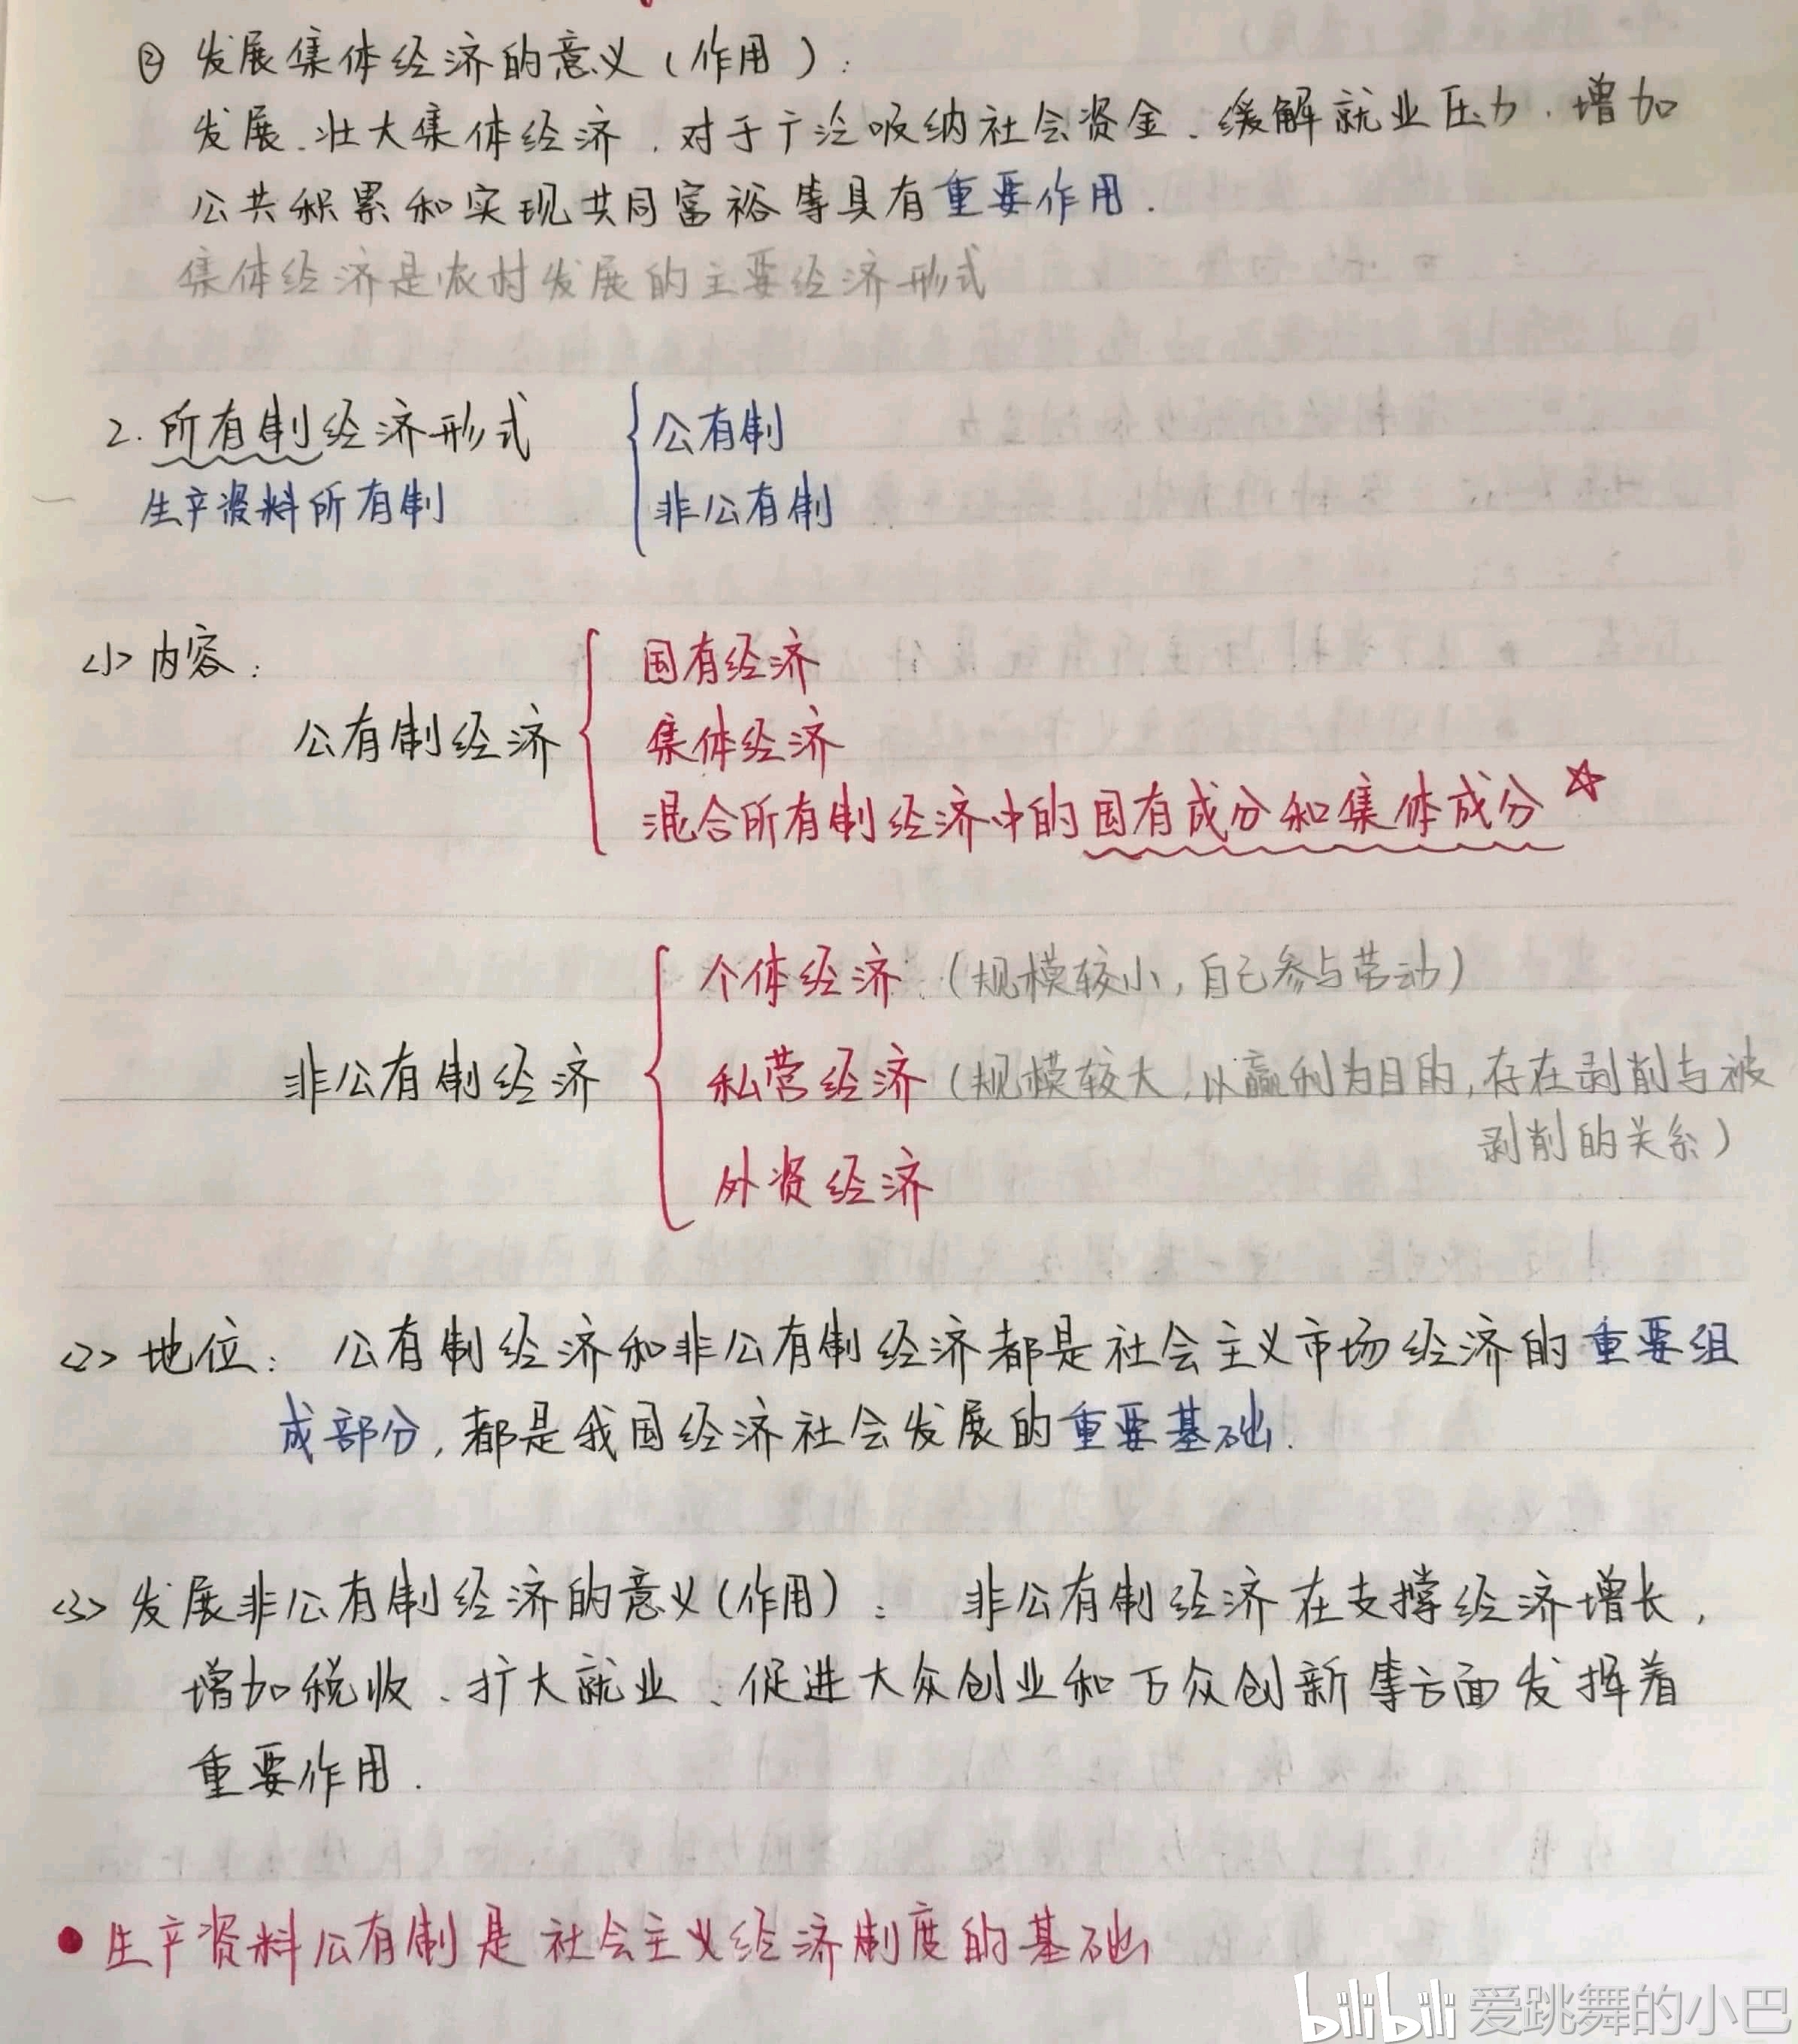 ② 发展集体经济的意义(作用):
发展、壮大集体经济,对于广泛吸纳社会资金、缓解就业压力、增加
公共积累和实现共同富裕等具有重要作用.
集体经济是农村发展的主要经济形式
2. 所有制经济形式 公有制
生产资料所有制 非公有制
<1> 内容:
国有经济
公有制经济 集体经济
混合所有制经济中的国有成分和集体成分☆
个体经济:(规模较小,自己参与劳动)
非公有制经济 私营经济(规模较大,以赢利为目的,存在剥削与被
剥削的关系)
外资经济
<2> 地位: 公有制经济和非公有制经济都是社会主义市场经济的重要组
成部分,都是我国经济社会发展的重要基础.
<3> 发展非公有制经济的意义(作用): 非公有制经济在支撑经济增长,
增加税收、扩大就业、促进大众创业和万众创新等方面发挥着
重要作用.
● 生产资料公有制是社会主义经济制度的基础
bilibili 爱跳舞的小巴